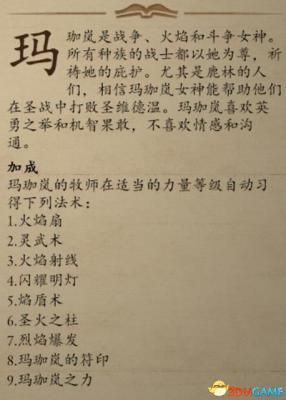 玛珈岚是战争、火焰和斗争女神。
所有种族的战士都以她为尊，祈
祷她的庇护。尤其是鹿林的人
们，相信玛珈岚女神能帮助他们
在圣战中打败圣维德温。玛珈岚喜欢英
勇之举和机智果敢，不喜欢情感和沟
通。
加成
玛珈岚的牧师在适当的力量等级自动习
得下列法术：
1.火焰扇
2.灵武术
3.火焰射线
4.闪耀明灯
5.焰盾术
6.圣火之柱
7.烈焰爆发
8.玛珈岚的符印
9.玛珈岚之力
3DMGAME